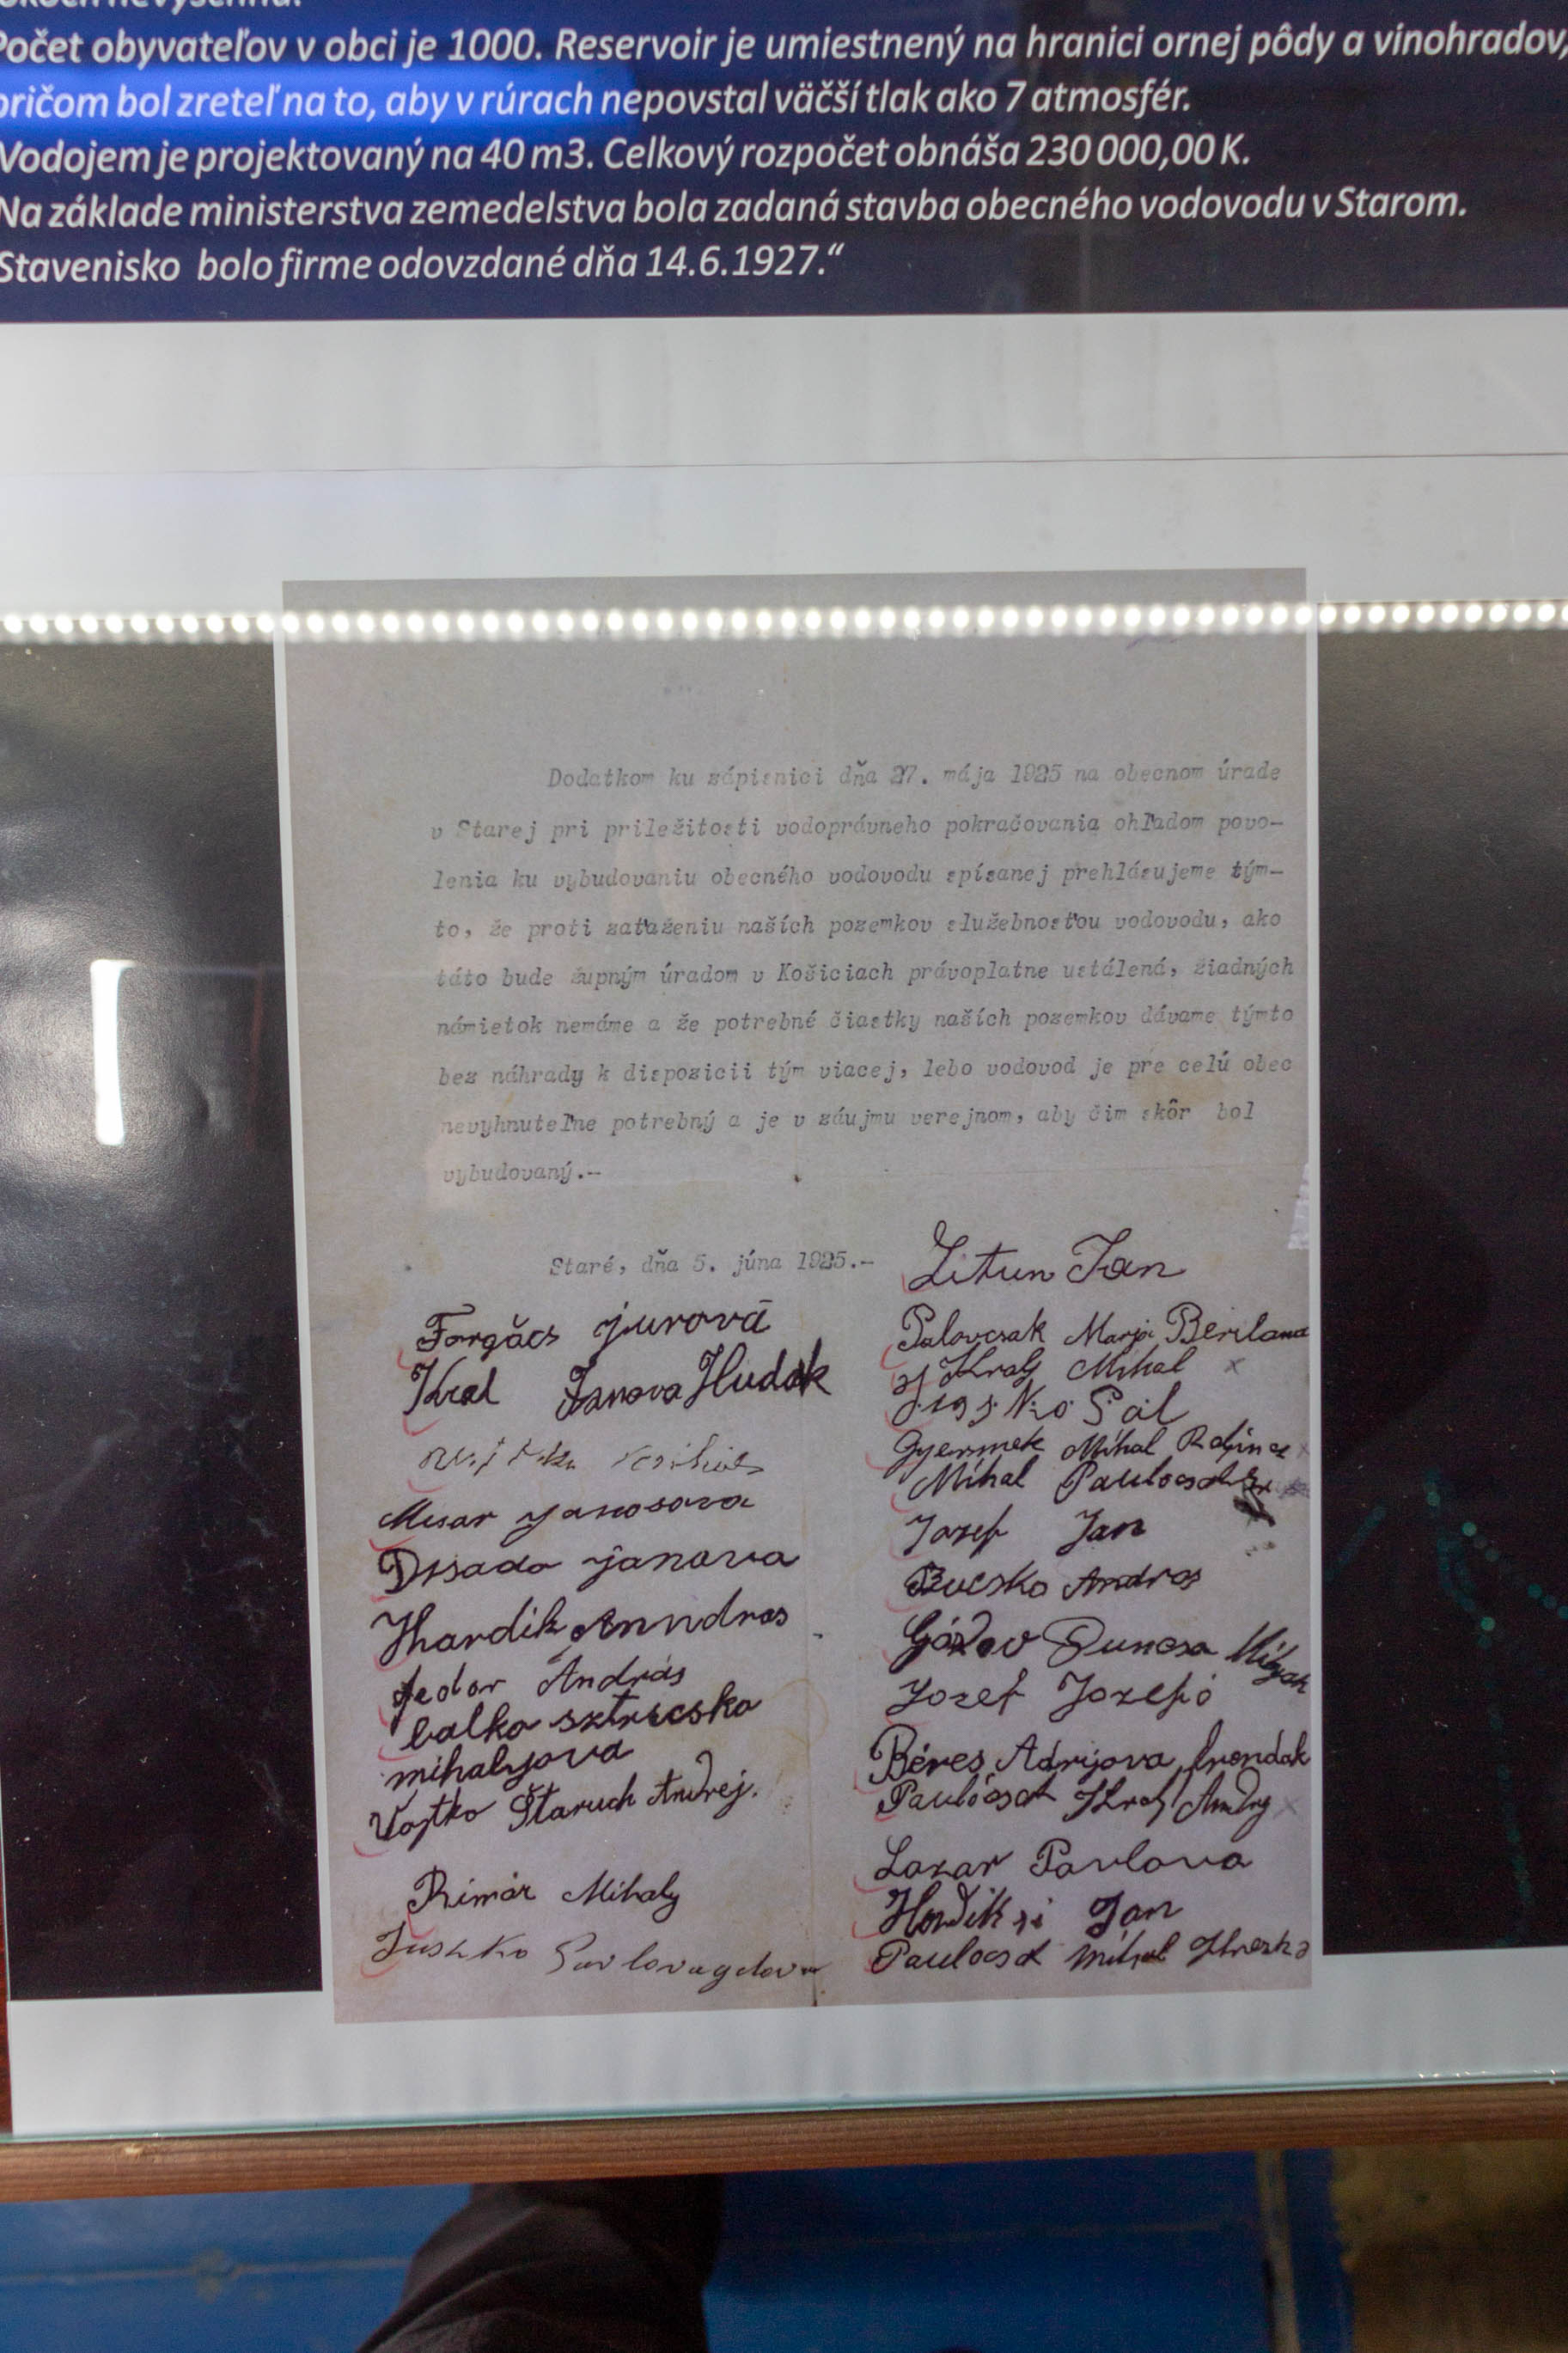 Počet obyvateľov v obci je 1000. Reservoir je umiestnený na hranici ornej pôdy a vinohradov,
pričom bol zreteľ na to, aby v rúrach nepovstal väčší tlak ako 7 atmosfér.
Vodojem je projektovaný na 40 m3. Celkový rozpočet obnáša 230 000,00 K.
Na základe ministerstva zemedelstva bola zadaná stavba obecného vodovodu v Starom.
Stavenisko bolo firme odovzdané dňa 14.6.1927.“
Dodatkom ku zápisnici dňa 27. mája 1925 na obecnom úrade
v Starej pri priležitosti vodoprávneho pokračovania ohľadom povo-
lenia ku vybudovaniu obecného vodovodu spísanej prehlásujeme tým-
to, že proti zaťaženiu naších pozemkov služebnosťou vodovodu, ako
táto bude župným úradom v Košiciach právoplatne ustálená, žiadných
námietok nemáme a že potrebné čiastky naších pozemkov dávame týmto
bez náhrady k dispozicii tým viacej, lebo vodovod je pre celú obec
nevyhnuteľne potrebný a je v záujmu verejnom, aby čim skôr bol
vybudovaný.-
Staré, dňa 5. júna 1925.-
Forgács jurová
Kral Janova Hudak
Mesar janosova
janova
Hardik Anndras
fedor András
balko
mihalyova
Vojtko Štaruch Andrej.
Rimár Mihaly
Jushko
Zitun Jan
Palovcsak
Kraly Mihal
Pál
Gyermek Mihal
Mihal
Jozef Jan
Bucsko Andras
Jozef
Béres
Lazar Pavlova
Jan
Mihal